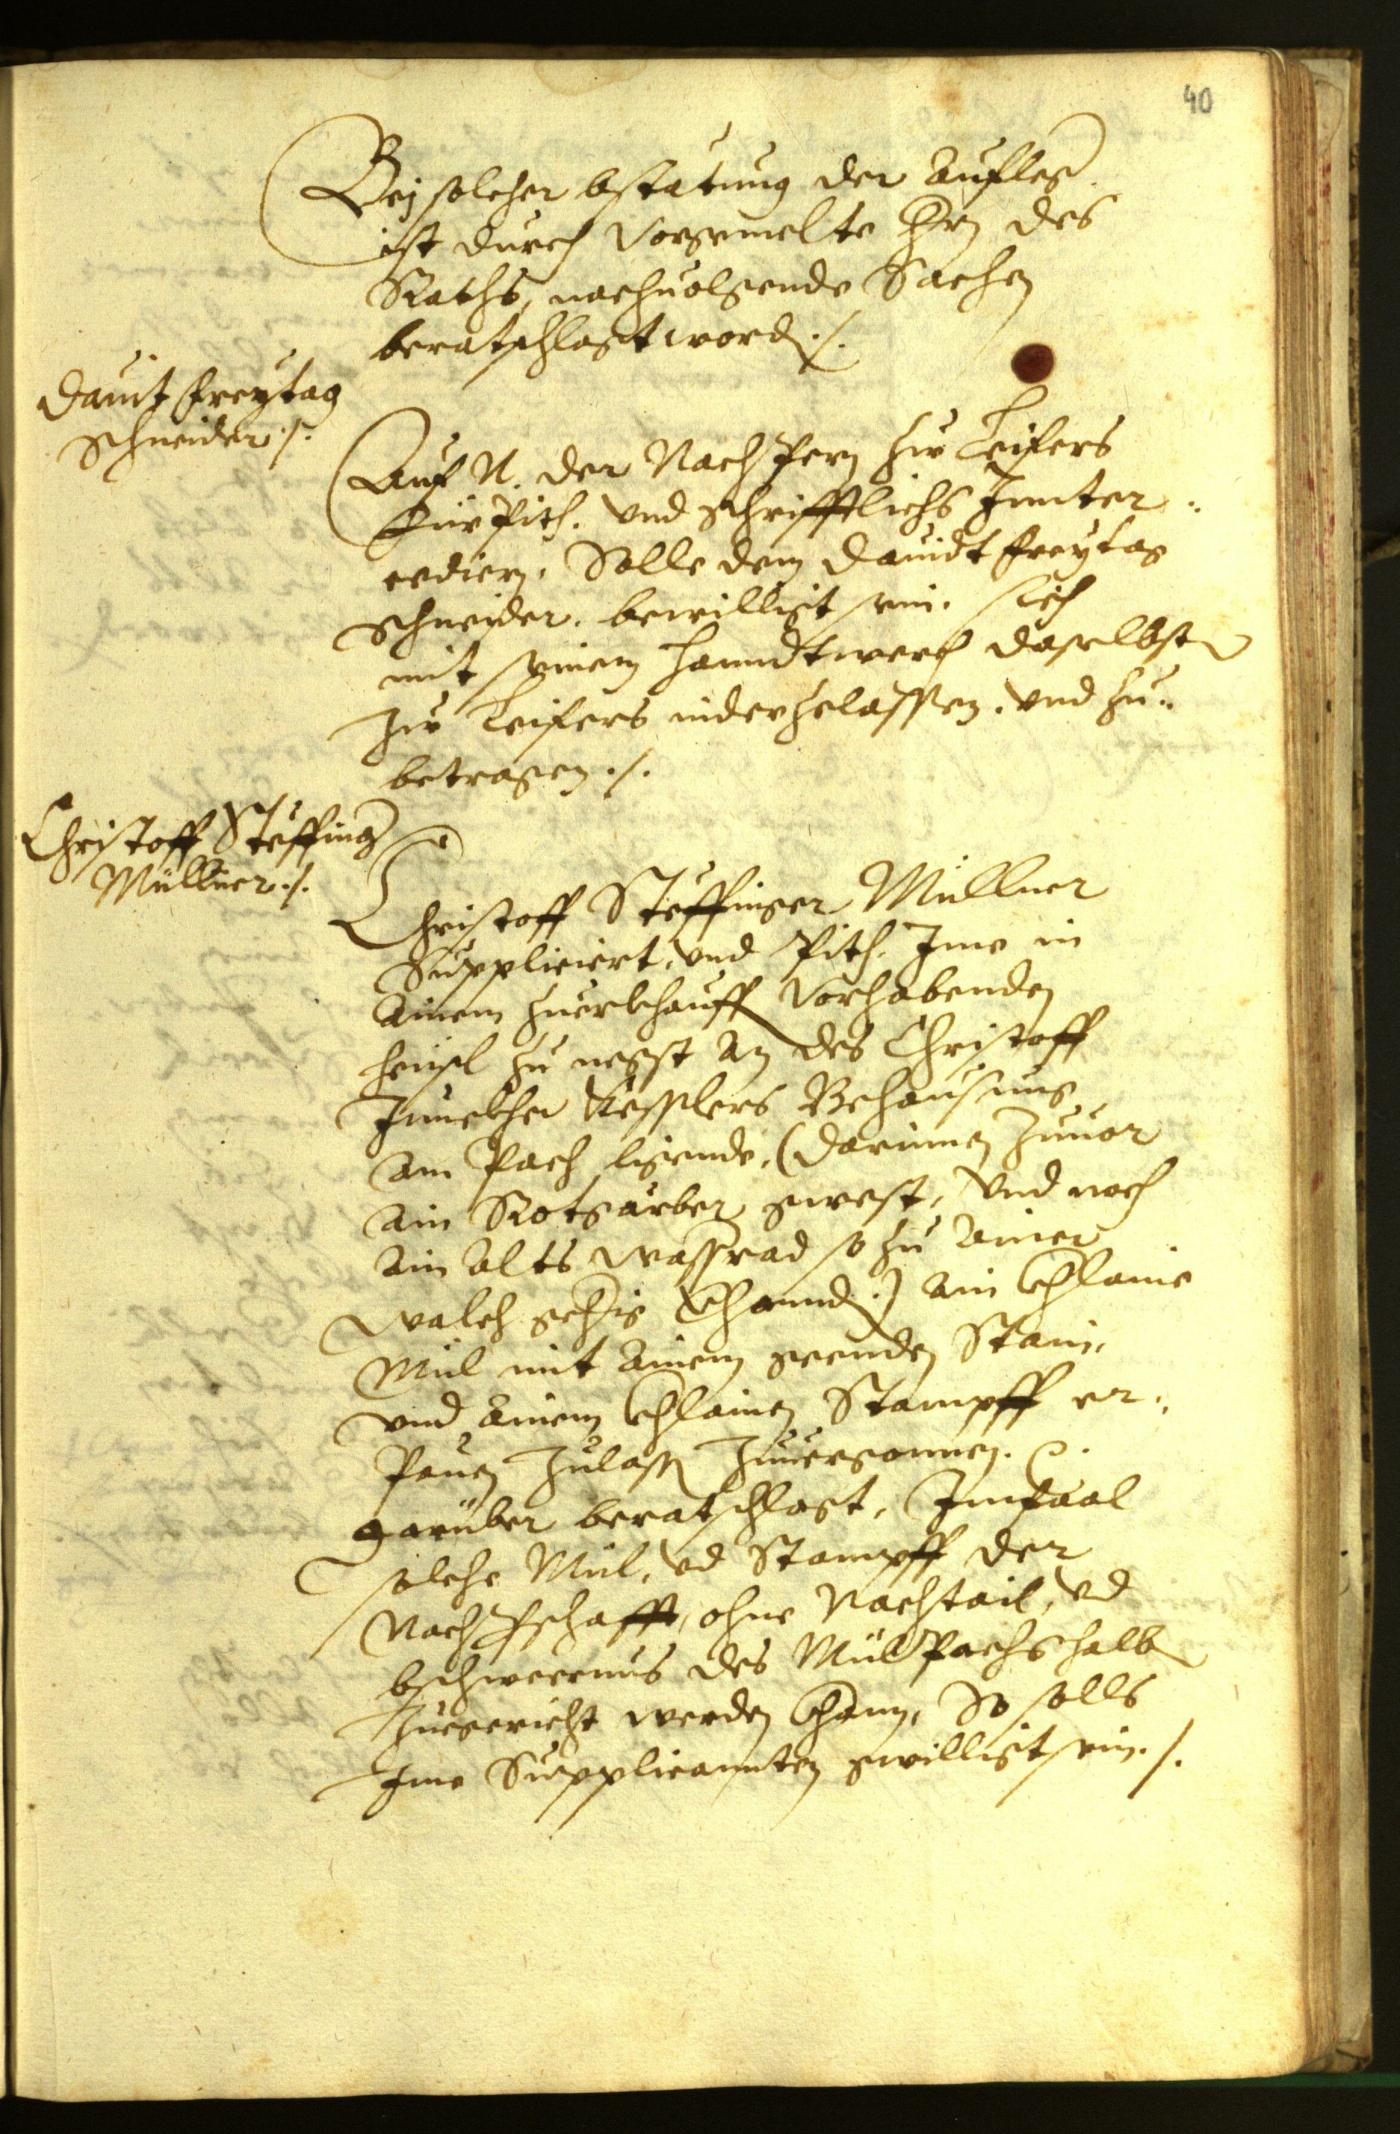 40
Bej solcher bstatung der Aufleg
ist durch Vorgemelte Hrn des
Raths, nachuolgende Sachen
beratschlagt word ./.
Dauit Freytag
Schneider ./.
Auf N. der Nachpern zu Leifers
Fürpith. Vnd schrifftlichs Innter„
cediern, Solle dem Dauidt Freytag
Schneider. bewilligt sein. sich
mit seinem Hanndtwerch daselbst
Zu Leifers niderzelassen. vnd zu„
betragen ./.
Christoff Steffing
Müllner ./.
Christoff Steffinger Müllner
Suppliciert, vnd Pith. Ime in
ainem zuerkhauff Vorhabenden
heüsl zu negst an des Christoff
Kesslers Behausung
am Pach ligende, (darinnen Zuuor
ain Rotgärber gwest, Vnd noch
ain alts wassrad so zu ainer
walch Vorhannd.) ain khlaine
Mül mit ainem geenden Stain,
vnd ainem khlainen Stampff er„
Pauen Zulassen Zuuergonnen.
Darüber beratschlagt, Imfaal
solche Mül, vnd Stampff der
Nachpschafft, ohne Nachtail, vnd
bschwernus des MülPachs halb
Zuegericht werden khann, So solls
Ime Supplicannten gwilligt sein ./.